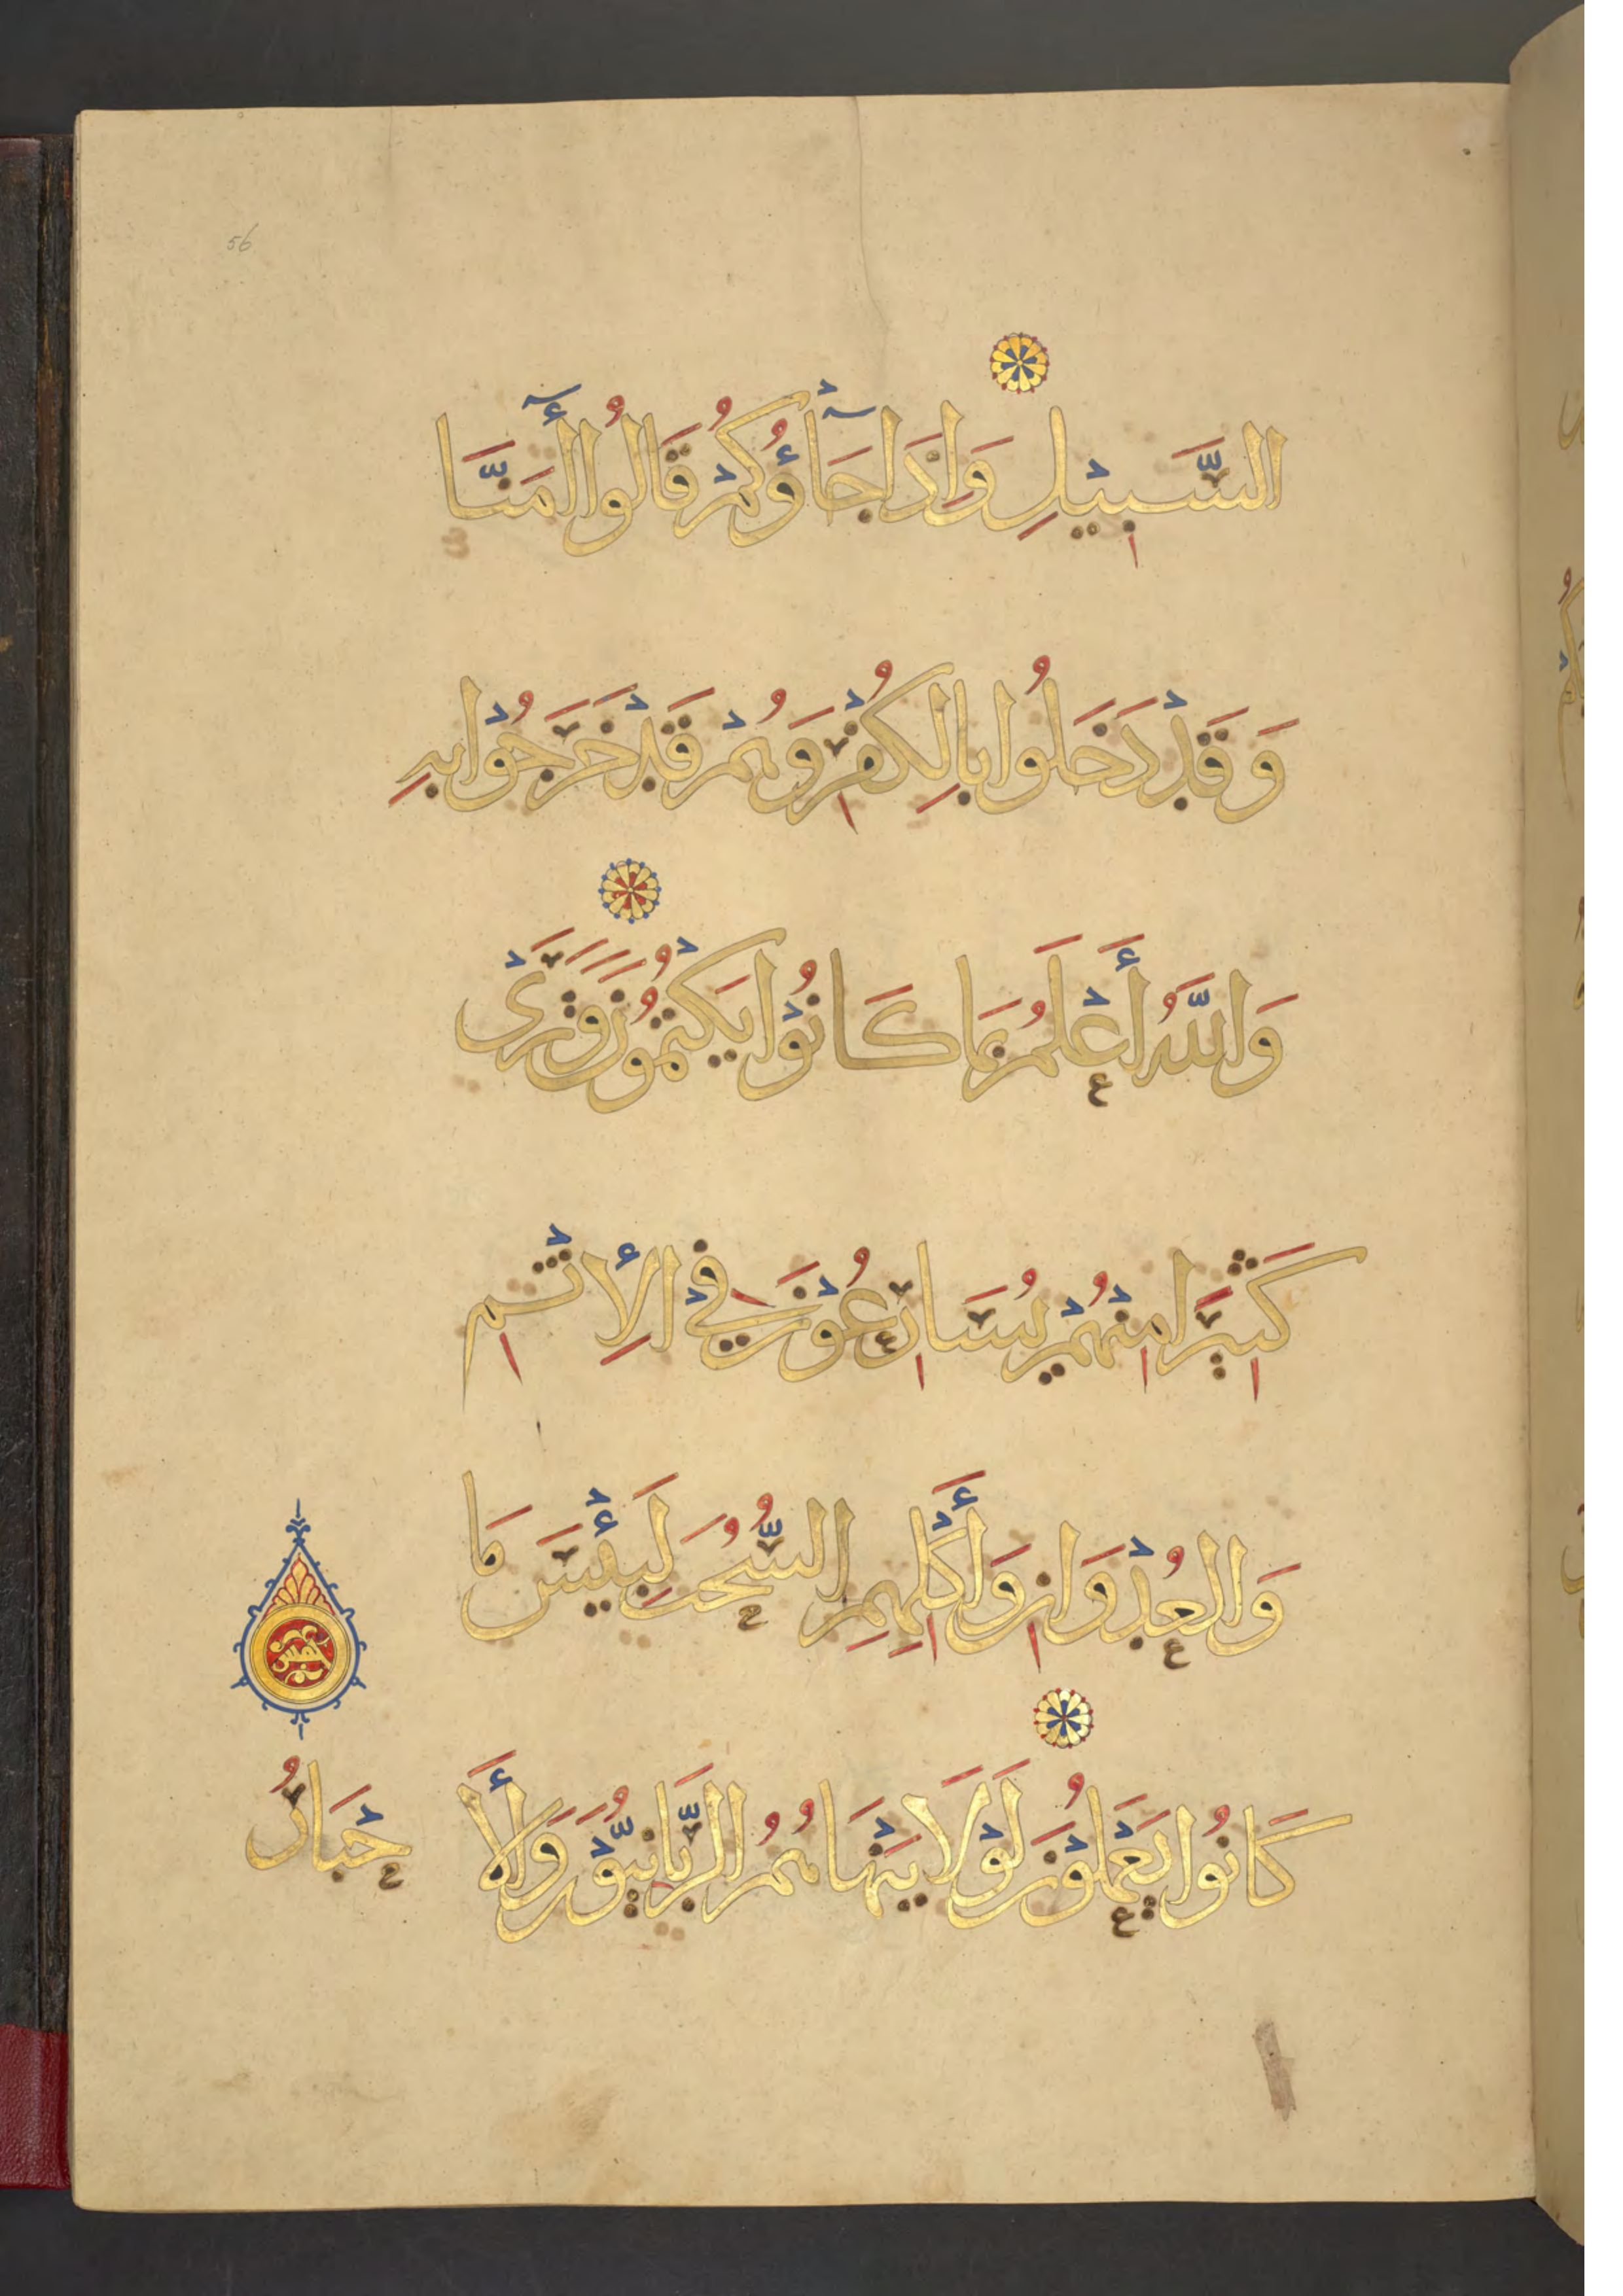 56
السَّبِيْلِ وَاِذَا جَآؤُكُمْ قَالُوا أٰمَنَّا
وَقَدْ دَخَلُوا بِالْكُفْرِ وَهُمْ قَدْ خَرَجُوْا بِهِ
وَاللّٰهُ أَعْلَمُ بِمَا كَانُوْا يَكْتُمُوْنَ وَتَرَىْ
كَثِيْرًا مِنْهُمْ يُسَارِعُوْنَ فِيْ الْإِثْمِ
وَالْعُدْوَانِ وَأَكْلِهِمِ السُّحْتَ لَبِئْسَ مَا
كَانُوا يَعْمَلُوْنَ لَوْلَا يَنْهَاهُمُ الرَّبَّانِيُّوْنَ وَالْأَ
حْبَارُ
خمس